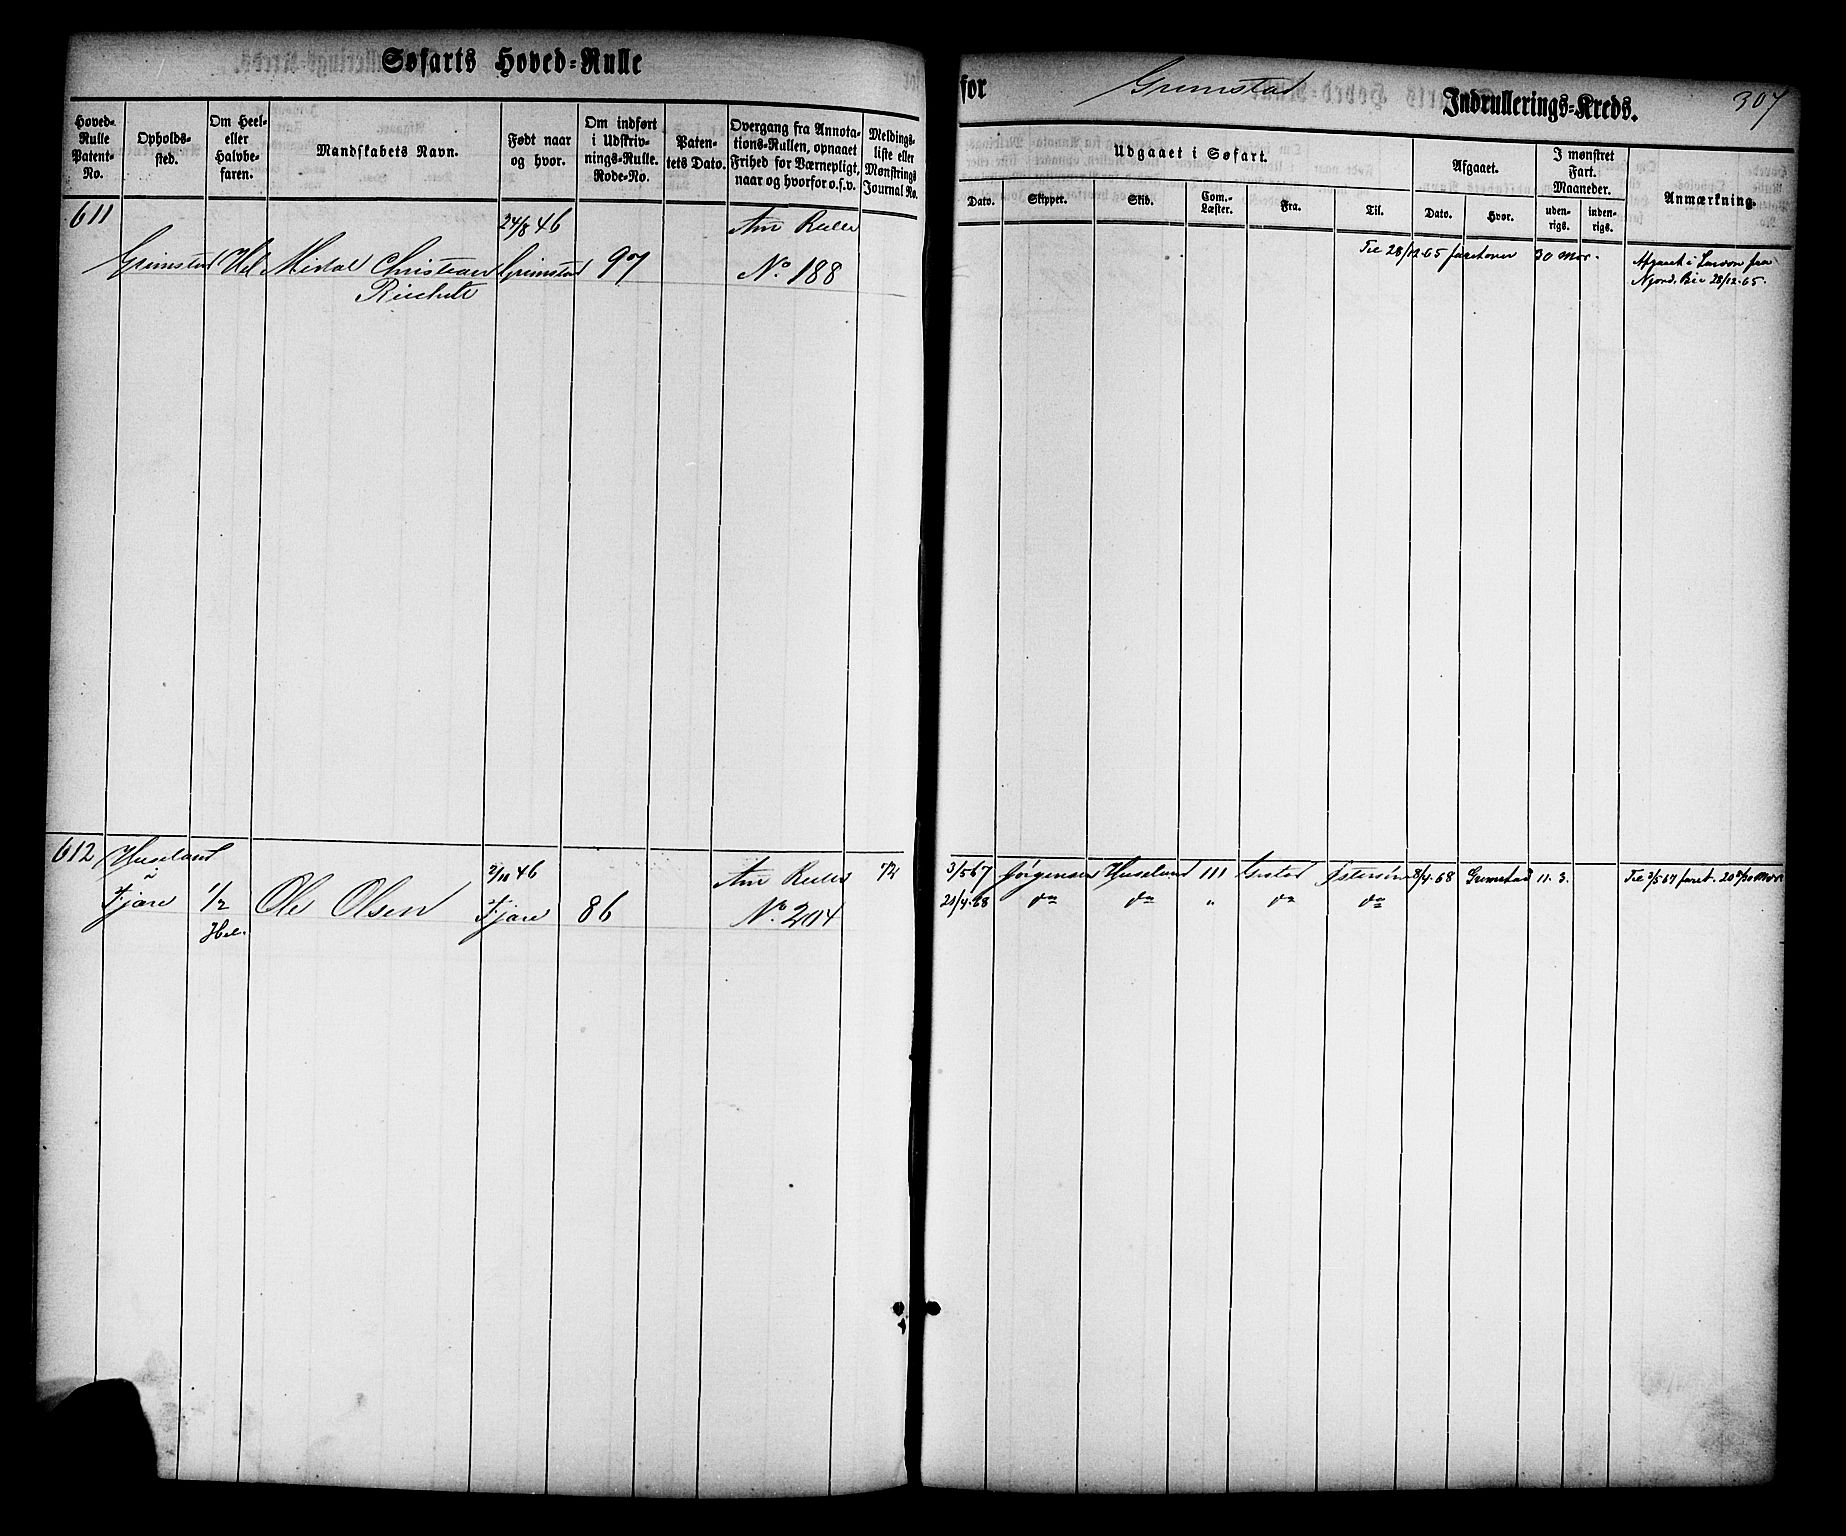 Søfarts Hoved-Rulle
for Grimstad Indrullerings-Kreds.
307
Hoved-Rulle Patent-No.
Opholds-sted.
Om Heel- eller Halvbe-faren.
Mandskabets Navn.
Født naar og hvor.
Om indført i Udskriv-nings-Rulle. Rode-No.
Paten-tets Dato.
Overgang fra Annota-tions-Rullen, opnaaet Frihed for Værnepligt, naar og hvorfor o.s.v.
Meldings-liste eller Mønstrings Journal No.
Udgaaet i Søfart.
Dato.
Skipper.
Skib.
Com.-Læster.
Fra.
Til.
Afgaaet.
Dato.
Hvor.
I mønstret Fart. Maaneder.
uden-rigs.
inden-rigs.
Anmærkning.
611
24/8 46
Ann Rulle
Grimstad Hel Christian Grimstad 97 No. 188
Til 28/12 65 faret over 30 Mdr.
Afgaaet i London fra
28/12-65.
612
Huseland
Fjære
1/2
Hel.
Ole Olsen
46
Fjære
86
Ann Rulle
No. 204
72
3/5 67 Jørgensen Huseland 111 Grstad Østersøen 8/4-68 Grimstad 11. 3.
20/4-68 do do " do do
Til 3/5 67 faret